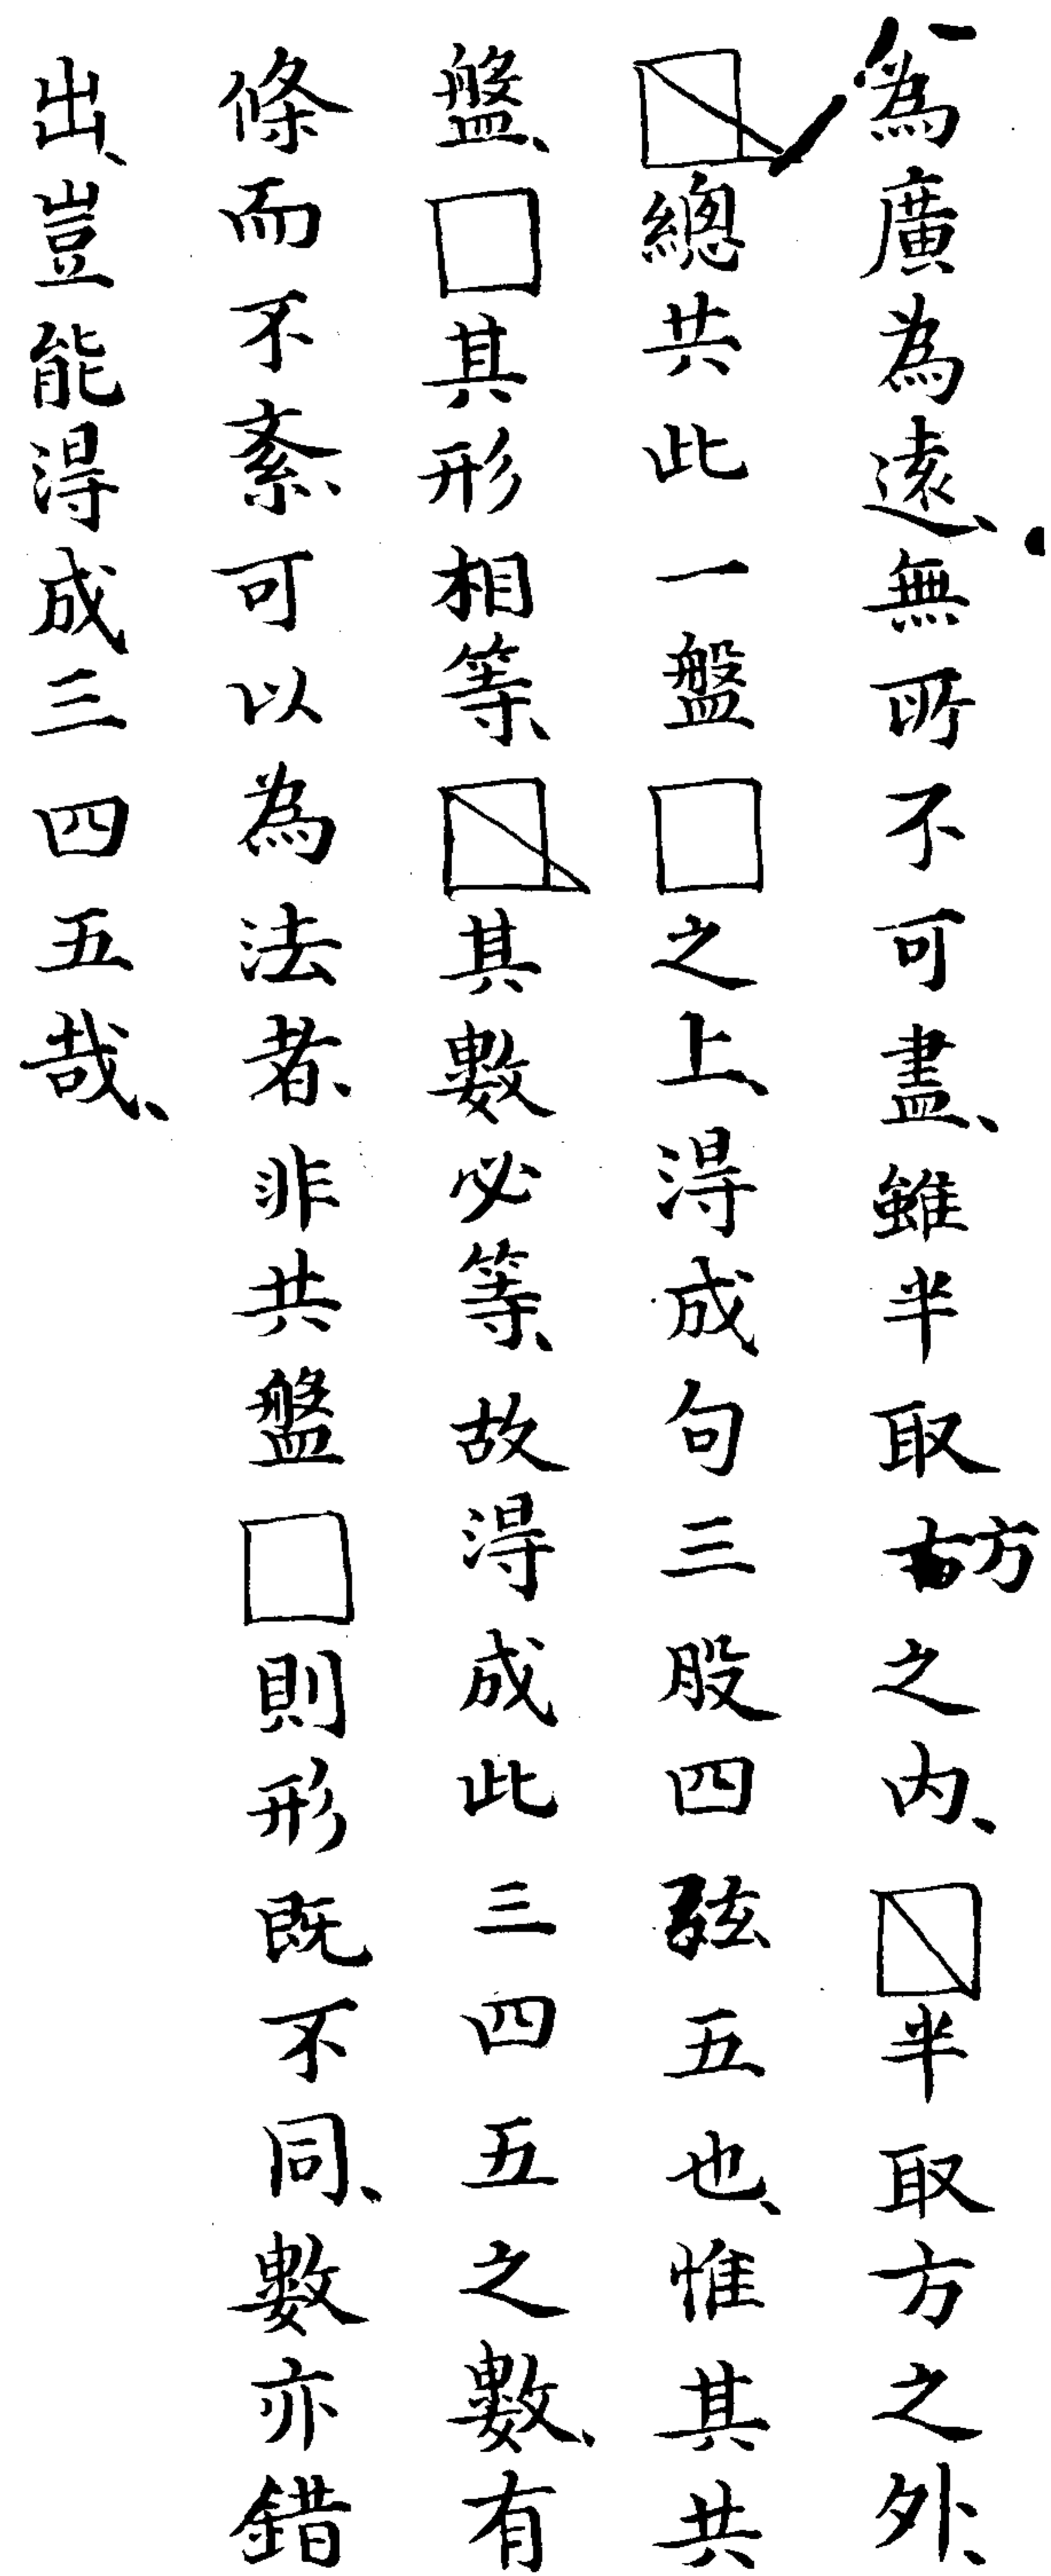 為廣為遠、無所不可盡、雖半取方之内、半取方之外、
總共此一盤□之上、得成句三股四弦五也、惟其共
盤、□其形相等、其數必等、故得成此三四五之數、有
條而不紊、可以為法者、非共盤□則形既不同、數亦錯
出、豈能得成三四五哉、